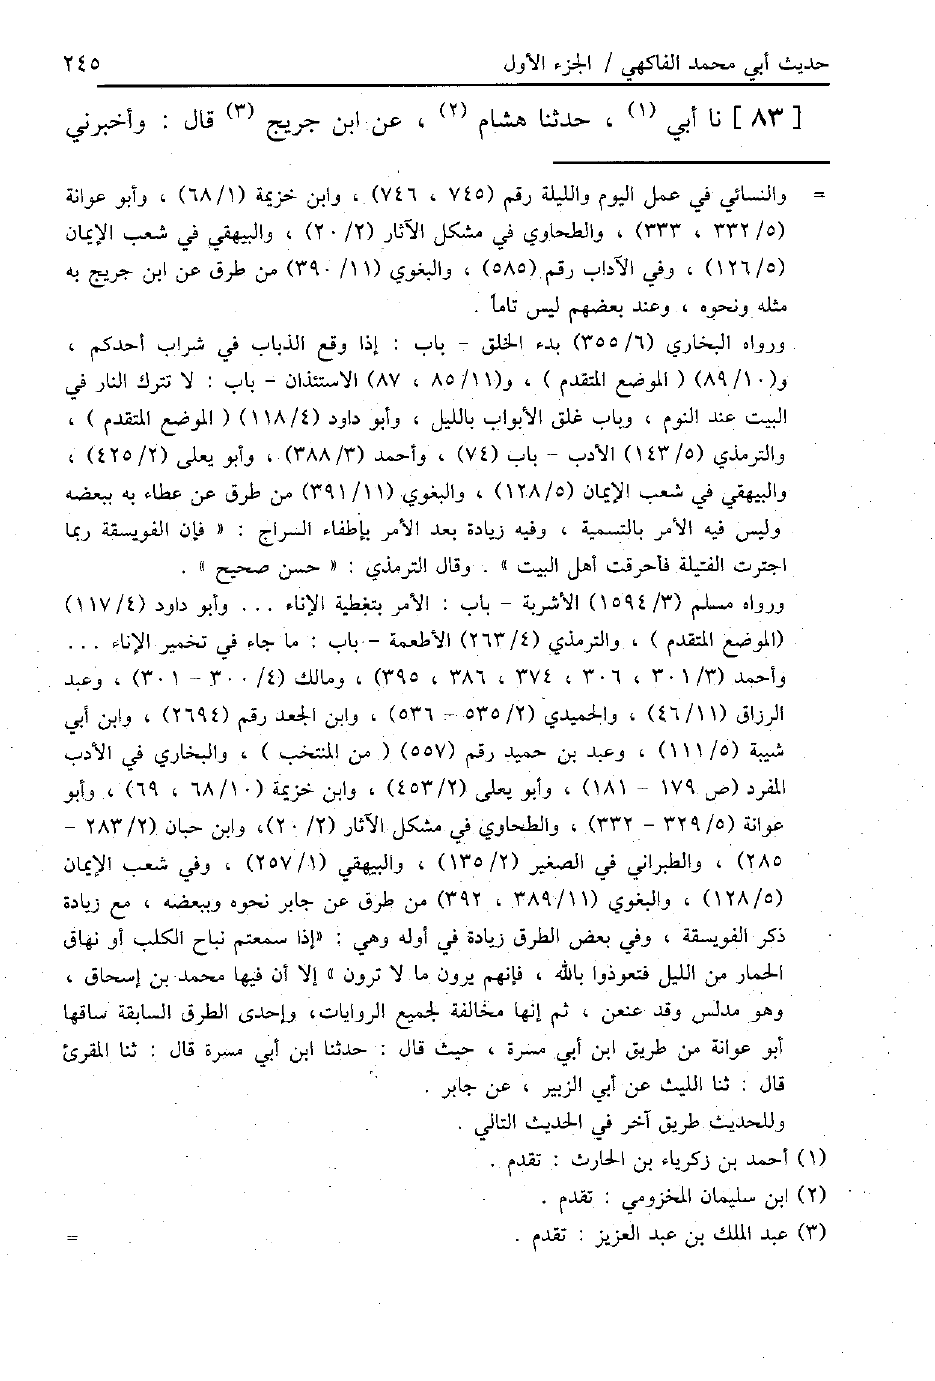 حديث أبي محمد الفاكهي / الجزء الأول ٢٤٥
[ ٨٣ ] نا أبي (١) ، حدثنا هشام (٢) ، عن ابن جريج (٣) قال : وأخبرني
= والنسائي في عمل اليوم والليلة رقم (٧٤٥ ، ٧٤٦) ، وابن خزيمة (٦٨/١) ، وأبو عوانة
(٣٣٢/٥ ، ٣٣٣) ، والطحاوي في مشكل الآثار (٢٠/٢) ، والبيهقي في شعب الإيمان
(١٢٦/٥) ، وفي الآداب رقم (٥٨٥) ، والبغوي (٣٩٠/١١) من طرق عن ابن جريج به
مثله ونحوه ، وعند بعضهم ليس تاماً .
ورواه البخاري (٣٥٥/٦) بدء الخلق – باب : إذا وقع الذباب في شراب أحدكم ،
و(٨٩/١٠) ( الموضع المتقدم ) ، و(٨٥/١١ ، ٨٧) الاستئذان – باب : لا تترك النار في
البيت عند النوم ، وباب غلق الأبواب بالليل ، وأبو داود (١١٨/٤) ( الموضع المتقدم ) ،
والترمذي (١٤٣/٥) الأدب – باب (٧٤) ، وأحمد (٣٨٨/٣) ، وأبو يعلى (٤٢٥/٢) ،
والبيهقي في شعب الإيمان (١٢٨/٥) ، والبغوي (٣٩١/١١) من طرق عن عطاء به ببعضه
وليس فيه الأمر بالتسمية ، وفيه زيادة بعد الأمر بإطفاء السراج : « فإن الفويسقة ربما
اجترت الفتيلة فأحرقت أهل البيت » . وقال الترمذي : « حسن صحيح » .
ورواه مسلم (١٥٩٤/٣) الأشربة – باب : الأمر بتغطية الإناء ... وأبو داود (١١٧/٤)
(الموضع المتقدم ) ، والترمذي (٢٦٣/٤) الأطعمة – باب : ما جاء في تخمير الإناء ...
وأحمد (٣٠١/٣ ، ٣٠٦ ، ٣٧٤ ، ٣٨٦ ، ٣٩٥) ، ومالك (٣٠٠/٤ – ٣٠١) ، وعبد
الرزاق (٤٦/١١) ، والحميدي (٥٣٥/٢ – ٥٣٦) ، وابن الجعد رقم (٢٦٩٤) ، وابن أبي
شيبة (١١١/٥) ، وعبد بن حميد رقم (٥٥٧) ( من المنتخب ) ، والبخاري في الأدب
المفرد (ص ١٧٩ – ١٨١) ، وأبو يعلى (٤٥٣/٢) ، وابن خزيمة (٦٨/١٠ ، ٦٩) ، وأبو
عوانة (٣٢٩/٥ – ٣٣٢) ، والطحاوي في مشكل الآثار (٢٠/٢)، وابن حبان (٢٨٣/٢ –
٢٨٥) ، والطبراني في الصغير (١٣٥/٢) ، والبيهقي (٢٥٧/١) ، وفي شعب الإيمان
(١٢٨/٥) ، والبغوي (٣٨٩/١١ ، ٣٩٢) من طرق عن جابر نحوه وببعضه ، مع زيادة
ذكر الفويسقة ، وفي بعض الطرق زيادة في أوله وهي : «إذا سمعتم نباح الكلب أو نهاق
الحمار من الليل فتعوذوا بالله ، فإنهم يرون ما لا ترون » إلا أن فيها محمد بن إسحاق ،
وهو مدلس وقد عنعن ، ثم إنها مخالفة لجميع الروايات، وإحدى الطرق السابقة ساقها
أبو عوانة من طريق ابن أبي مسرة ، حيث قال : حدثنا ابن أبي مسرة قال : ثنا المقرئ
قال : ثنا الليث عن أبي الزبير ، عن جابر .
وللحديث طريق آخر في الحديث التالي .
(١) أحمد بن زكرياء بن الحارث : تقدم .
(٢) ابن سليمان المخزومي : تقدم .
(٣) عبد الملك بن عبد العزيز : تقدم . =